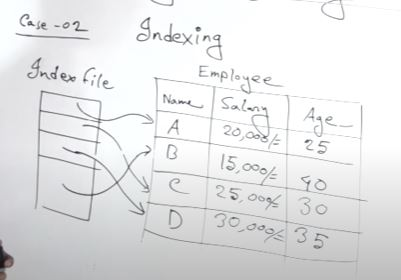 Case-02
Indexing
Index file
Employee
Name Salary Age
A 20,000/= 25
B 15,000/= 40
C 25,000/= 30
D 30,000/= 35